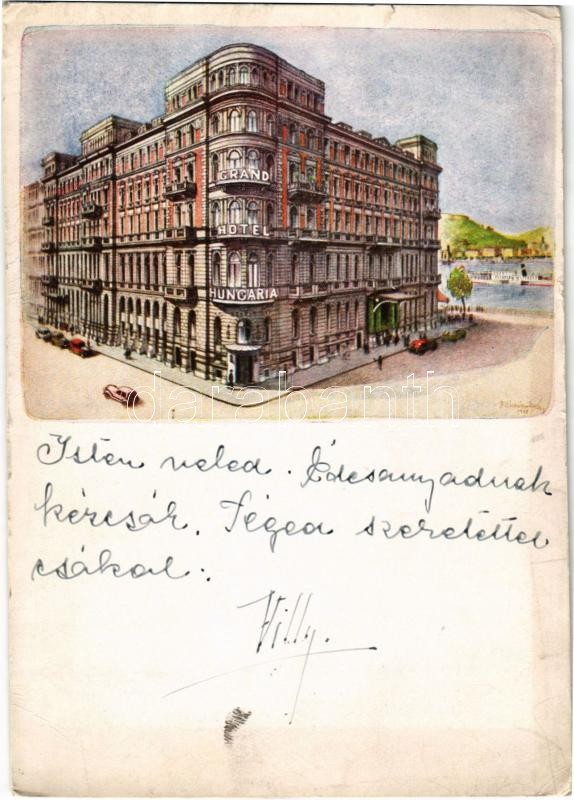 GRAND
HOTEL
HUNGARIA
darabanth
Isten veled. Édesanyádnak
kézcsók. Téged szeretettel
csókol:
Villy.